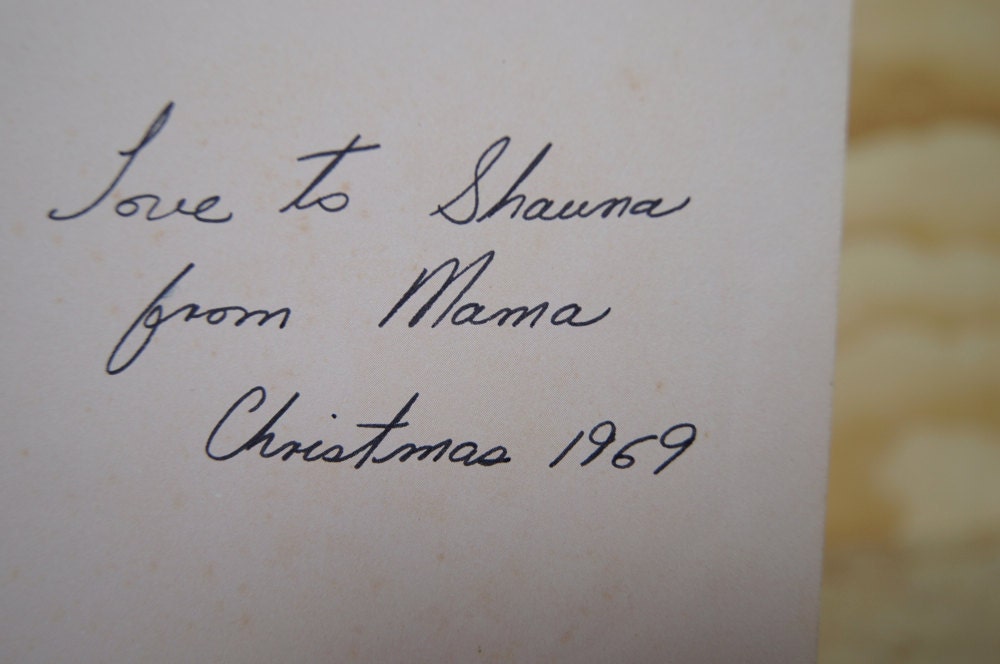 Love to Shauna
from Mama
Christmas 1969